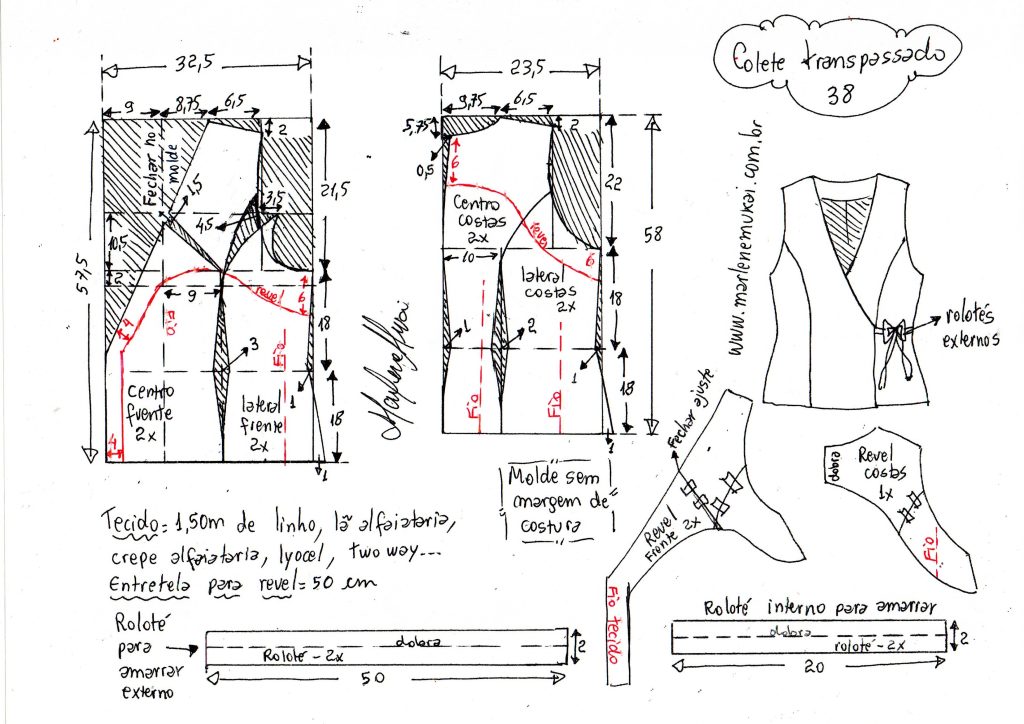 Colete transpassado
38
www.marlenemukai.com.br
32,5
9
8,75
6,5
2
Fechar no
molde
1,5
21,5
3,5
4,5
10,5
2
57,5
9
revel
6
4
Fio
Fio
18
3
1
Centro
frente
2x
lateral
frente
2x
18
4
1
Marlene Mukai
23,5
9,75
6,5
5,75
2
0,5
6
22
58
Centro
costas
2x
revel
10
6
lateral
costas
2x
18
1
2
1
Fio
Fio
18
1
rolotés
externos
Molde sem
margem de
costura
Fechar ajuste
Revel
Frente 2x
Fio tecido
dobra
Revel
costas
1x
Fio
Tecido= 1,50m de linho, lã alfaiataria,
crepe alfaiataria, lyocel, two way...
Entretela para revel= 50 cm
Roloté
para
amarrar
externo
dobra
Roloté - 2x
2
50
Roloté interno para amarrar
dobra
roloté - 2x
2
20